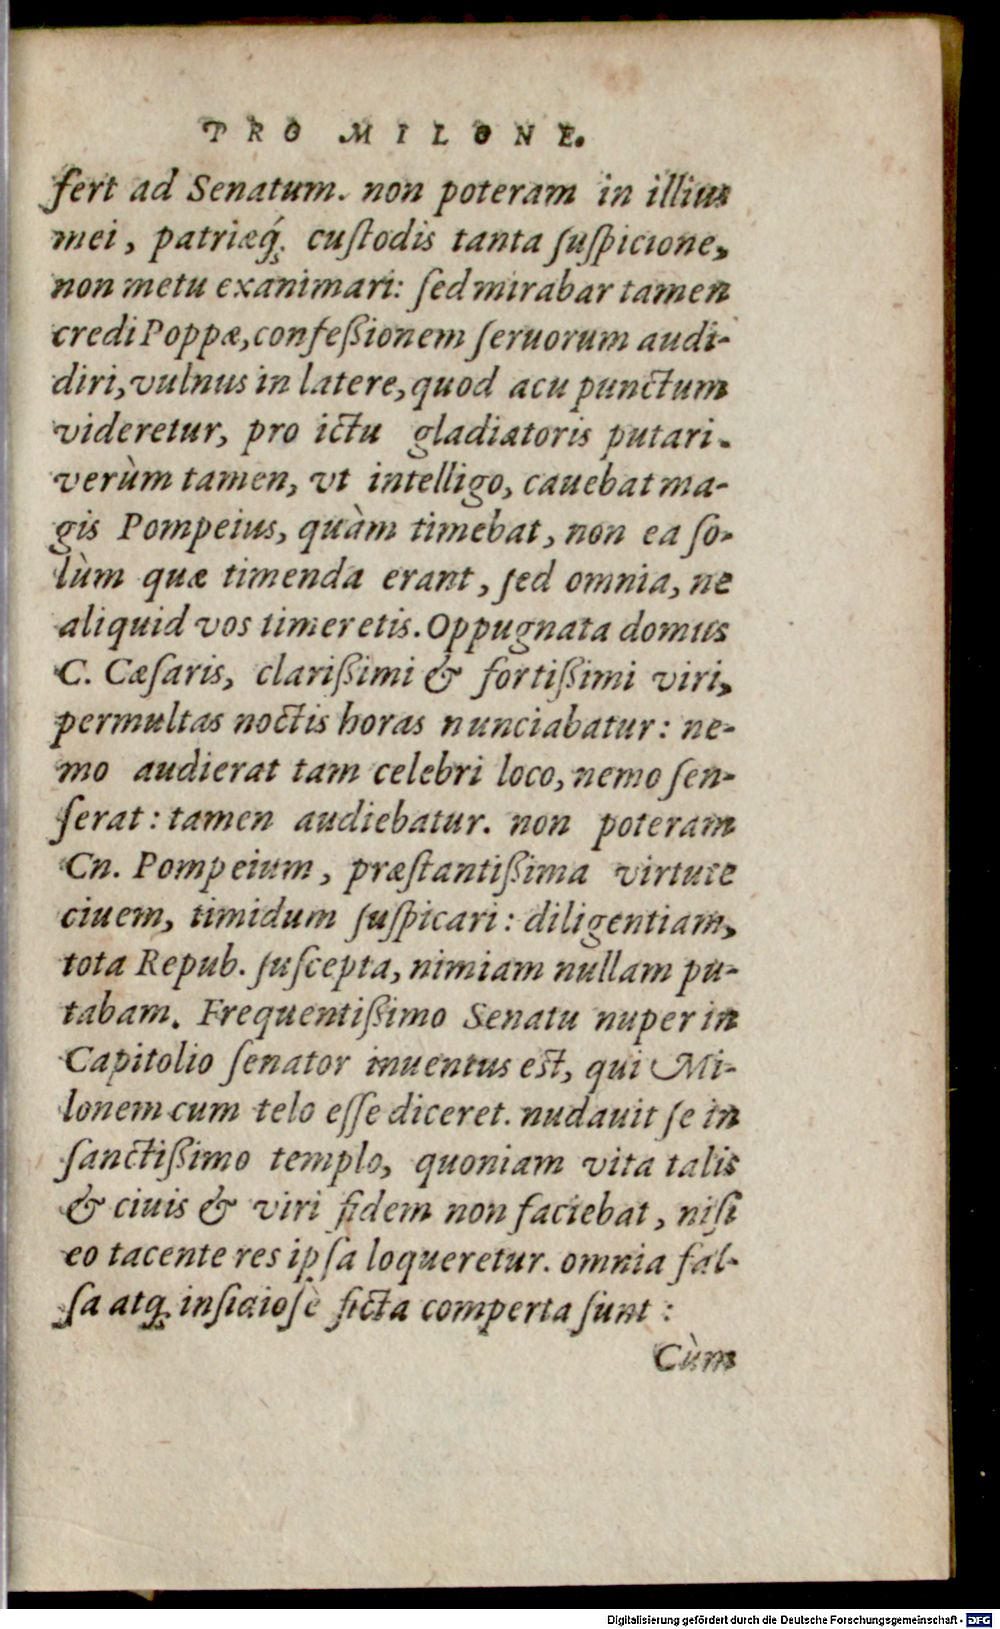 PRO MILONE.
fert ad Senatum. non poteram in illius
mei, patriæq́; custodis tanta ſuſpicione,
non metu exanimari: ſed mirabar tamen
credi Poppæ, confeßionem ſeruorum audi-
diri, vulnus in latere, quod acu punctum
videretur, pro ictu gladiatoris putari.
verùm tamen, vt intelligo, cauebat ma-
gis Pompeius, quàm timebat, non ea ſo-
lùm quæ timenda erant, ſed omnia, ne
aliquid vos timeretis. Oppugnata domus
C. Cæſaris, clarißimi & fortißimi viri,
permultas noctis horas nunciabatur: ne-
mo audierat tam celebri loco, nemo ſen-
ſerat: tamen audiebatur. non poteram
Cn. Pompeium, præſtantißima virtute
ciuem, timidum ſuſpicari: diligentiam,
tota Repub. ſuſcepta, nimiam nullam pu-
tabam. Frequentißimo Senatu nuper in
Capitolio ſenator inuentus est, qui Mi-
lonem cum telo eſſe diceret. nudauit ſe in
ſanctißimo templo, quoniam vita talis
& ciuis & viri fidem non faciebat, niſi
eo tacente res ipſa loqueretur. omnia fal-
ſa atq; inſidioſè ficta comperta ſunt:
Cùm
Digitalisierung gefördert durch die Deutsche Forschungsgemeinschaft - DFG